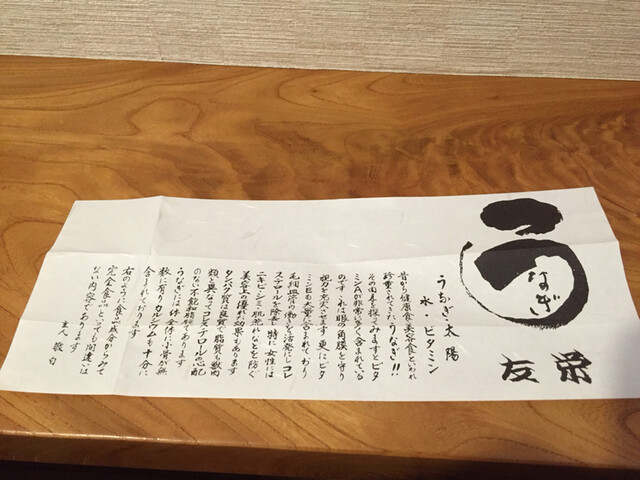 うなぎ
友栄
うなぎ・太陽
水・ビタミン
昔から健康食、美容食といわれ
珍重されてきたうなぎ!!
その由来を探ってみますとビタ
ミンAが非常に多く含まれている
のです これは眼の角膜を守り
視力を充実させます 更にビタ
ミンEも大量に含まれており
毛細血管の働きを活発にしコレ
ステロールを除去し特に女性には
ニキビ・シミ・肌荒れなどを防ぐ
美容上の優れた効果もあります
タンパク質は良質で脂質も獣肉
類と異なってコレステロールの心配
のない不飽和脂肪であります
うなぎには一体全体に小骨が無
数に有りカルシウムも十分に
含まれております
右のように食品成分からみて
完全食品といっても間違いは
ない内容であります
主人 敬白